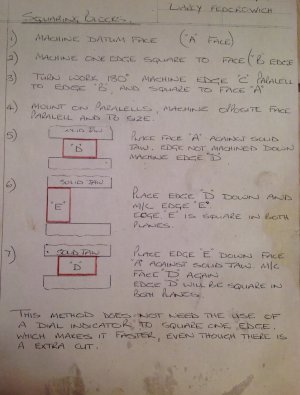 SQUARING BLOCKS.
LARRY FEDEROWICH
1) MACHINE DATUM FACE ("A" FACE)
2) MACHINE ONE EDGE SQUARE TO FACE ("B" EDGE
3) TURN WORK 180° MACHINE EDGE "C" PARALELL
TO EDGE "B", AND SQUARE TO FACE "A"
4) MOUNT ON PARALELLS, MACHINE OPPOSITE FACE
PARALELL AND TO SIZE.
5)
SOLID JAW
"D"
PLACE FACE "A" AGAINST SOLID
JAW. EDGE NOT MACHINED DOWN
MACHINE EDGE "D"
6)
SOLID JAW
"E"
PLACE EDGE "D" DOWN AND
M/C EDGE "E".
EDGE "E" IS SQUARE IN BOTH
PLANES.
7)
SOLID JAW
"D"
PLACE EDGE "E" DOWN FACE
"A" AGAINST SOLID JAW. M/C
FACE "D" AGAIN
EDGE "D" WILL BE SQUARE IN
BOTH PLANES.
THIS METHOD DOES NOT NEED THE USE OF
A DIAL INDICATOR TO SQUARE ONE EDGE.
WHICH MAKES IT FASTER, EVEN THOUGH THERE IS
A EXTRA CUT.